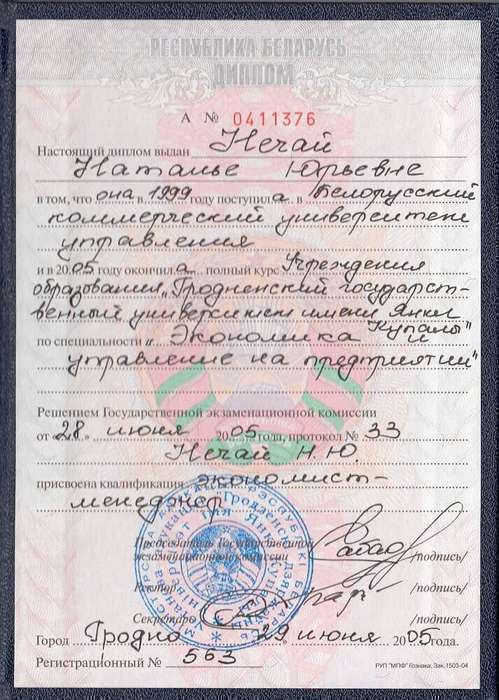 РЕСПУБЛИКА БЕЛАРУСЬ
ДИПЛОМ
А № 0411376
Настоящий диплом выдан Нечай
Наталье Юрьевне
в том, что она в 1999 году поступила в Белорусский
коммерческий университет
управления
и в 2005 году окончила полный курс Учреждения
образования „Гродненский государст-
венный университет имени Янки
Купалы"
по специальности „Экономика и
управление на предприятии"
Решением Государственной экзаменационной комиссии
от «28» июня 2005 года, протокол № 33
Нечай Н.Ю.
присвоена квалификация экономист-
менеджер
Председатель Государственной
экзаменационной комиссии /подпись/
Ректор /подпись/
Секретарь /подпись/
Город Гродно 29 июня 2005 года.
Регистрационный № 563
РУП "МПФ" Гознака, Зак.1503-04